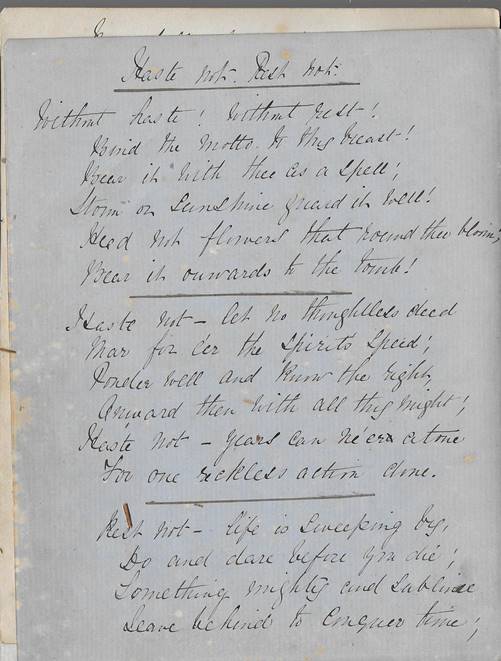 Haste not. Rest not.
Without haste! Without rest!
Bind the motto to thy breast!
Bear it with thee as a spell;
Storm or sunshine guard it well!
Heed not flowers that round thee bloom;
Bear it onwards to the tomb!
Haste not – let no thoughtless deed
Mar for e'er the spirit's speed;
Ponder well and know the right,
Onward then with all thy might;
Haste not – years can ne'er atone
For one reckless action done.
Rest not – life is sweeping by,
Do and dare before you die;
Something mighty and sublime
Leave behind to conquer time;